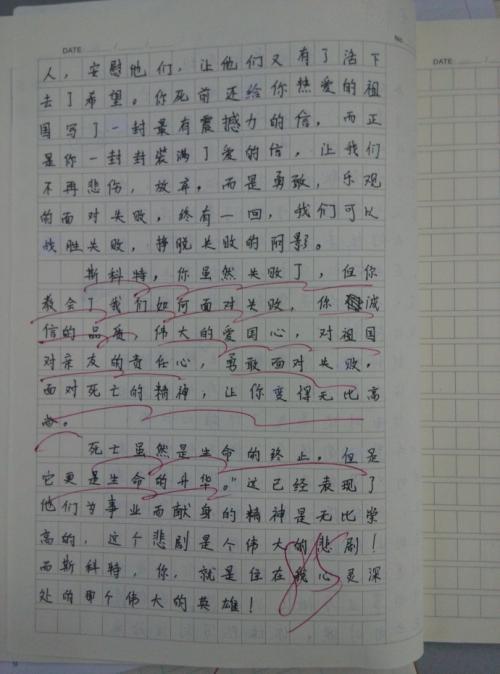 DATE
NO.
人，安慰他们，让他们又有了活下
去了希望。你死前还给你热爱的祖
国写了一封最有震撼力的信，而正
是你一封封装满了爱的信，让我们
不再悲伤，放弃，而是勇敢，乐观
的面对失败，终有一回，我们可以
战胜失败，挣脱失败的阴影。
斯科特，你虽然失败了，但你
教会了我们如何面对失败，你诚
信的品质，伟大的爱国心，对祖国
对亲友的责任心，勇敢面对失败，
面对死亡的精神，让你变得无比高
尚。
死亡虽然是生命的终止，但是
它更是生命的升华。"这已经表现了
他们为事业而献身的精神是无比崇
高的，这个悲剧是个伟大的悲剧！
而斯科特，你，就是住在我心灵深
处的那个伟大的英雄！
85
DATE